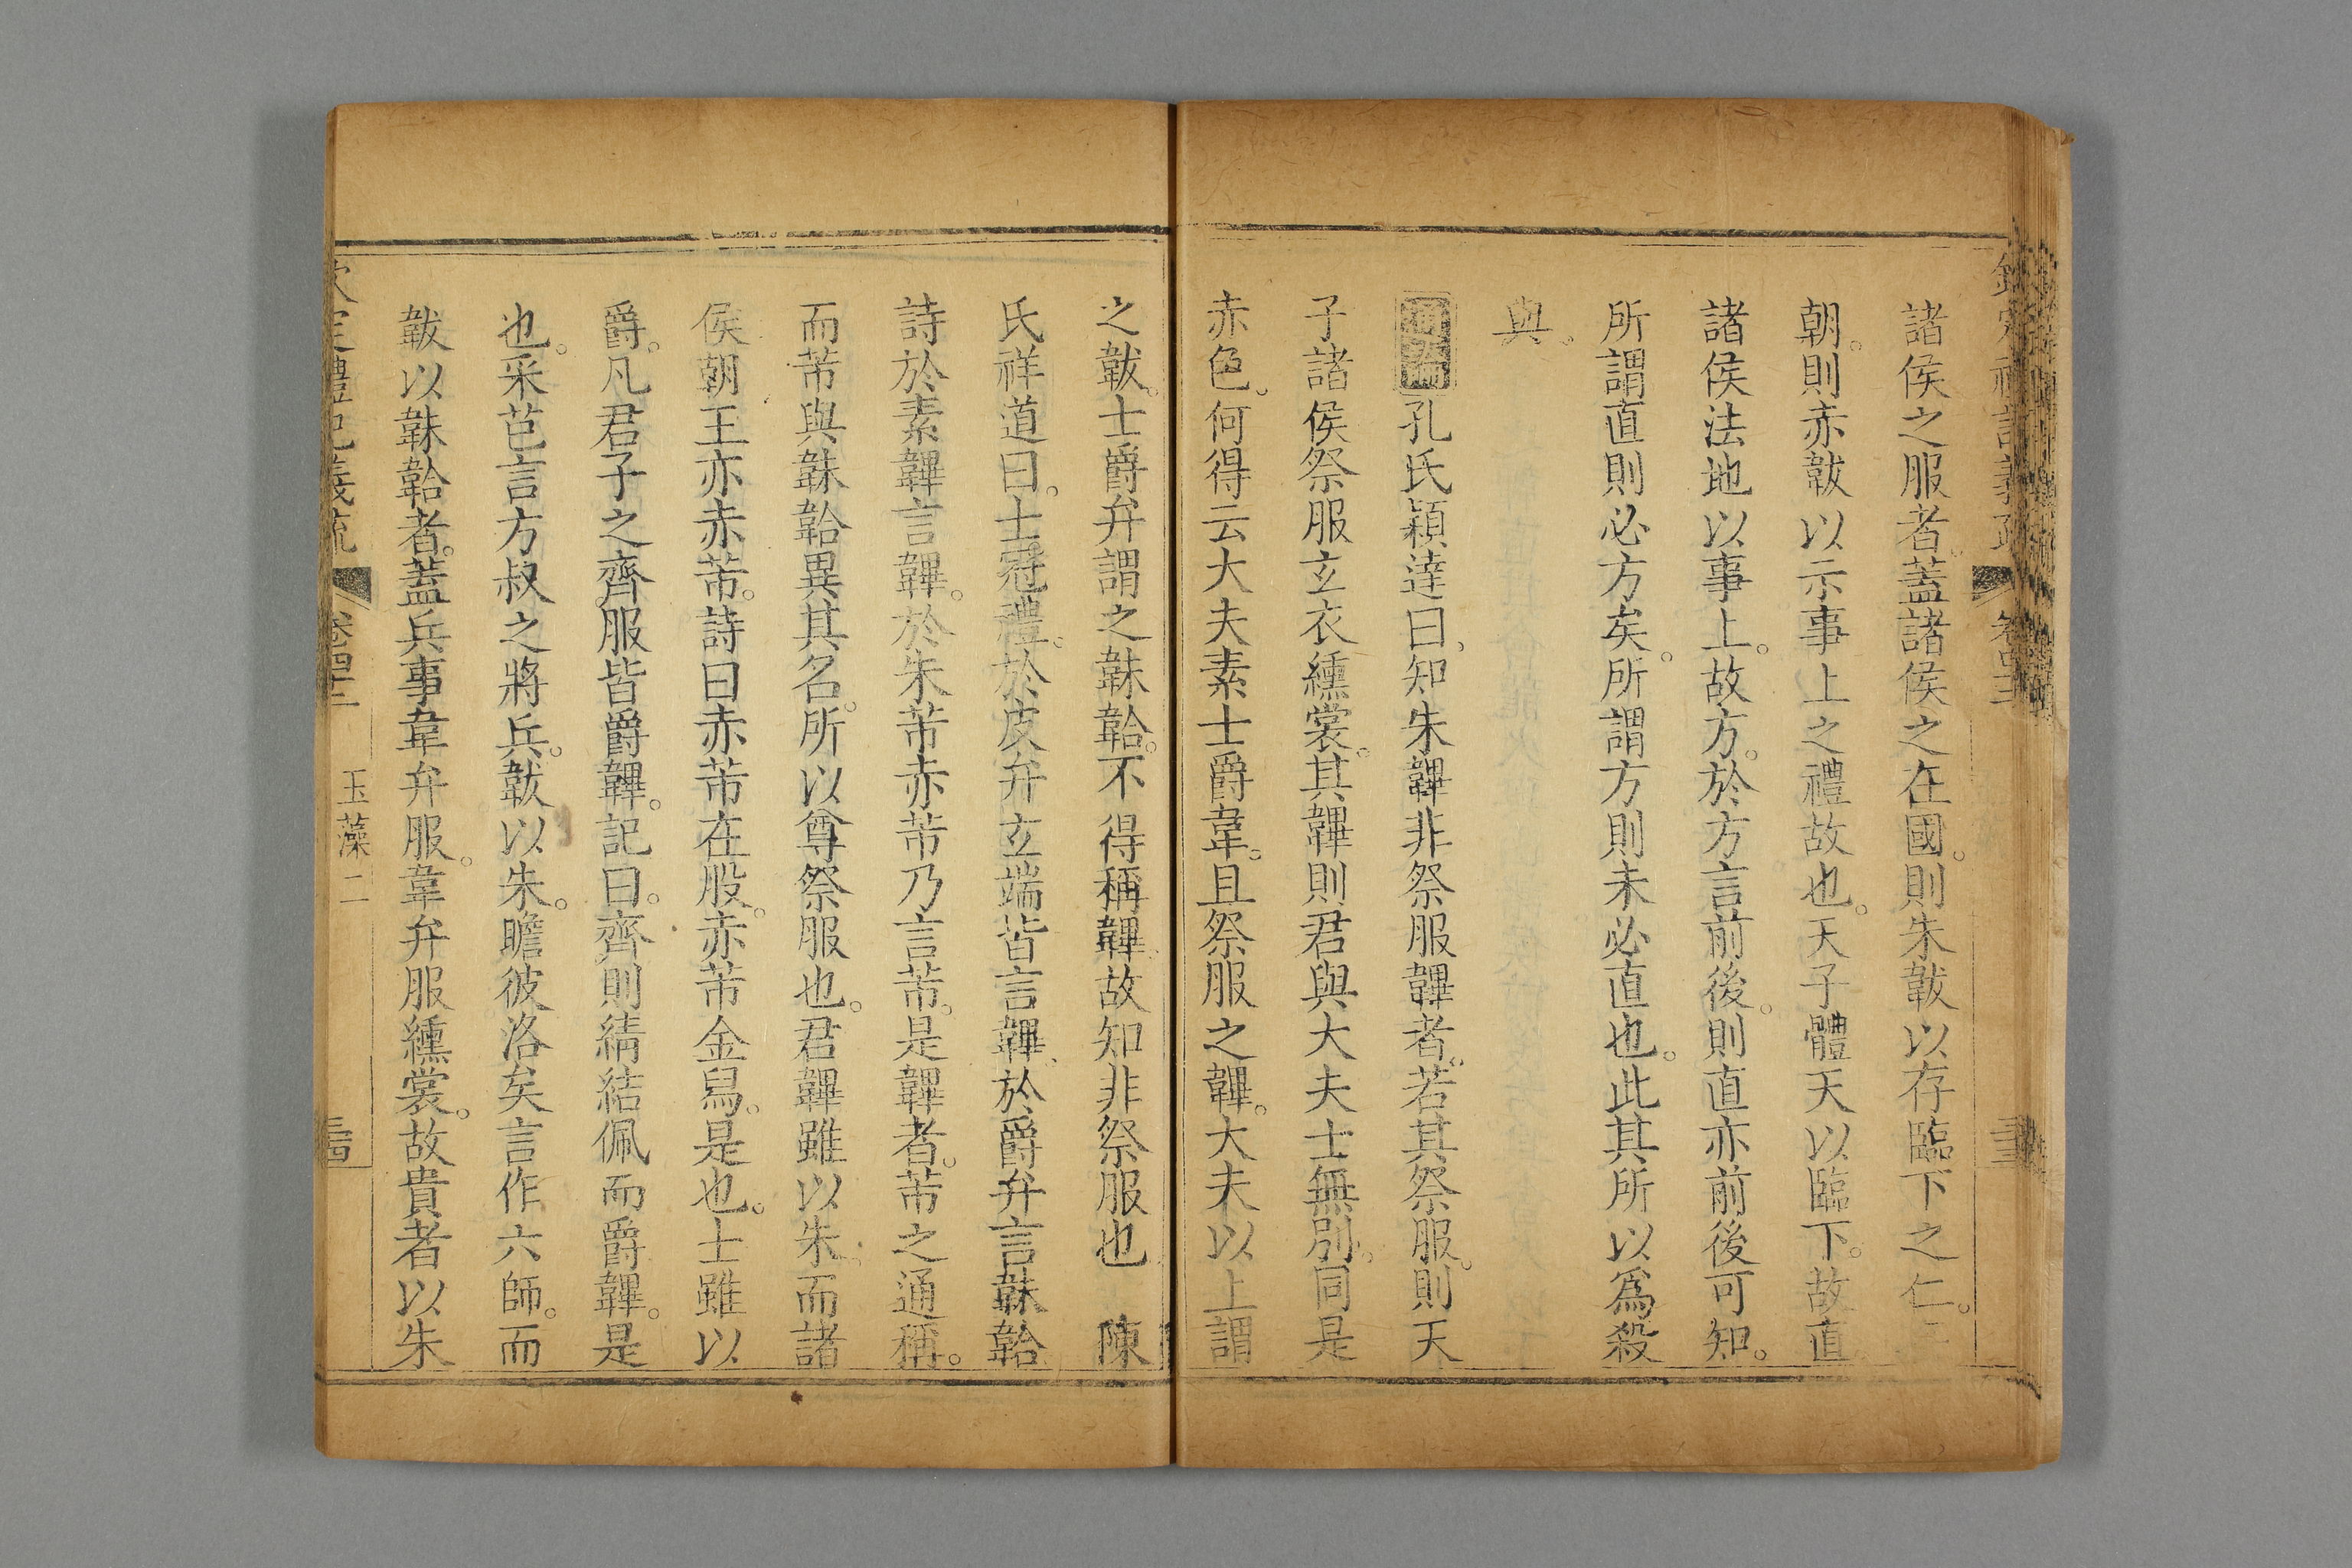 諸侯之服者蓋諸侯之在國。則朱韍以存臨下之仁。
朝。則赤韍以示事上之禮故也。天子體天以臨下。故直
諸侯法地以事上。故方。於方言前後。則直亦前後可知。
所謂直則必方矣。所謂方則未必直也。此其所以爲殺
與。
通論孔氏穎達曰、知朱韠非祭服韠者。若其祭服。則天
子諸侯祭服玄衣纁裳。其韠則君與大夫士無別、同是
赤色、何得云大夫素士爵韋。且祭服之韠。大夫以上謂
之韍。士爵弁謂之韎韐。不得稱韠、故知非祭服也 陳
氏祥道曰。士冠禮。於皮弁玄端皆言韠、於爵弁言韎韐
詩於素韠言韠。於朱芾赤芾乃言芾。是韠者。芾之通稱。
而芾與韎韐異其名。所以尊祭服也。君韠雖以朱。而諸
侯朝王亦赤芾。詩曰赤芾在股。赤芾金舄。是也。士雖以
爵。凡君子之齊服皆爵韠。記曰。齊則綪結佩而爵韠。是
也。采芑言方叔之將兵。韍以朱。瞻彼洛矣言作六師。而
韍以韎韐者。蓋兵事韋弁服。韋弁服纁裳。故貴者以朱
欽定禮記義疏 卷四十三 玉藻二